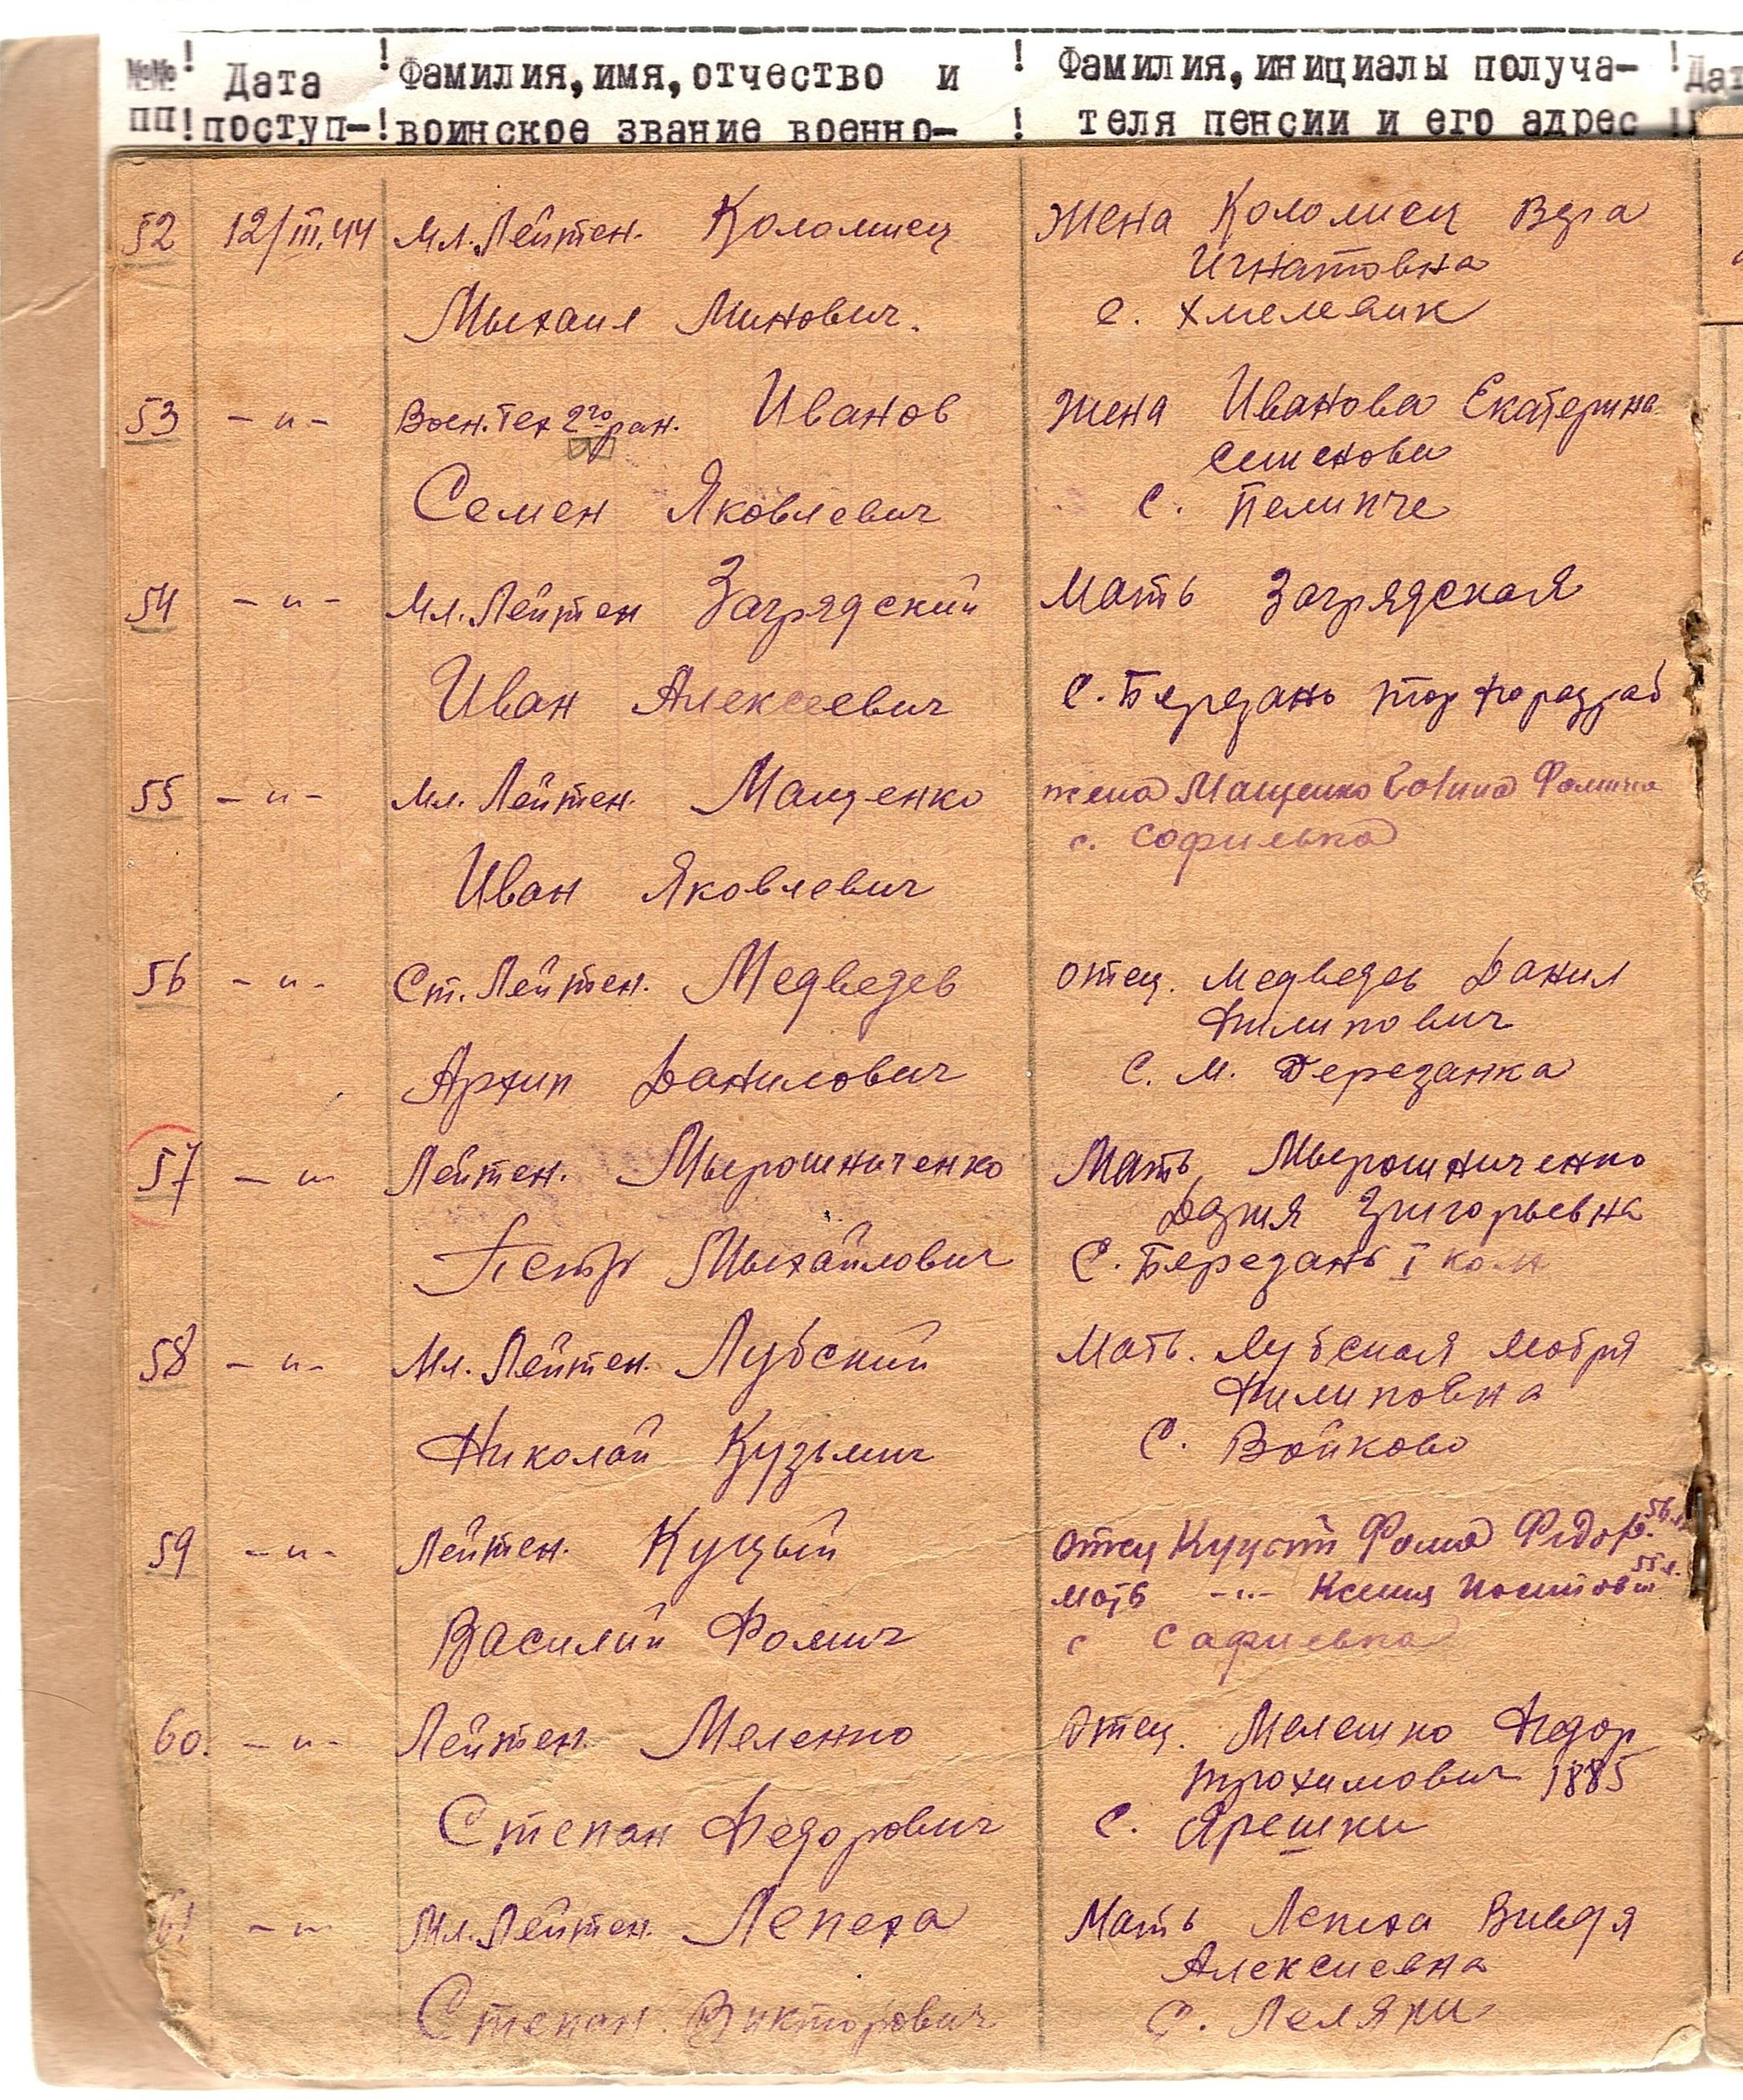 №№ ! Дата ! Фамилия, имя, отчество и ! Фамилия, инициалы получа- ! Дат
пп ! поступ- ! воинское звание военно- ! теля пенсии и его адрес !
52 12/III.44 Мл. Лейтен. Коломиец Жена Коломиец Вера
Игнатовна
Мыхаил Минович. с. Хмелевик
53 -"- Воен. Тех 2го ран. Иванов Жена Иванова Екатерина
Семенова
Семен Яковлевич С. Пелипче
54 -"- Мл. Лейтен Загрядский Мать Загрядская
Иван Алексеевич С. Березань торфоразраб
55 -"- Мл. Лейтен. Мащенко жена Мащенко Фомична
с. Софиевка
Иван Яковлевич
56 -"- Ст. Лейтен. Медведев отец. Медведев Данил
Филипович
Архип Данилович С. М. Березанка
57 -"- Лейтен. Мырошниченко Мать Мырошниченко
Григорьевна
Петр Мыхайлович С. Березань I колх
58 -"- Мл. Лейтен. Лубский Мать. Лубская
Филиповна
Николай Кузьмич С. Войково
59 -"- Лейтен. Куцый отец Куцый Фома Федор. 56 л.
мать -"- Ксения 55 л.
Василий Фомич с Сафиевка
60. -"- Лейтен. Меленко Отец. Мелешко Федор
Трохимович 1885
Степан Федорович С. Ярешки
61 -"- Мл. Лейтен. Лепеха Мать Лепеха
Алексиевна
Степан Викторович С. Леляки